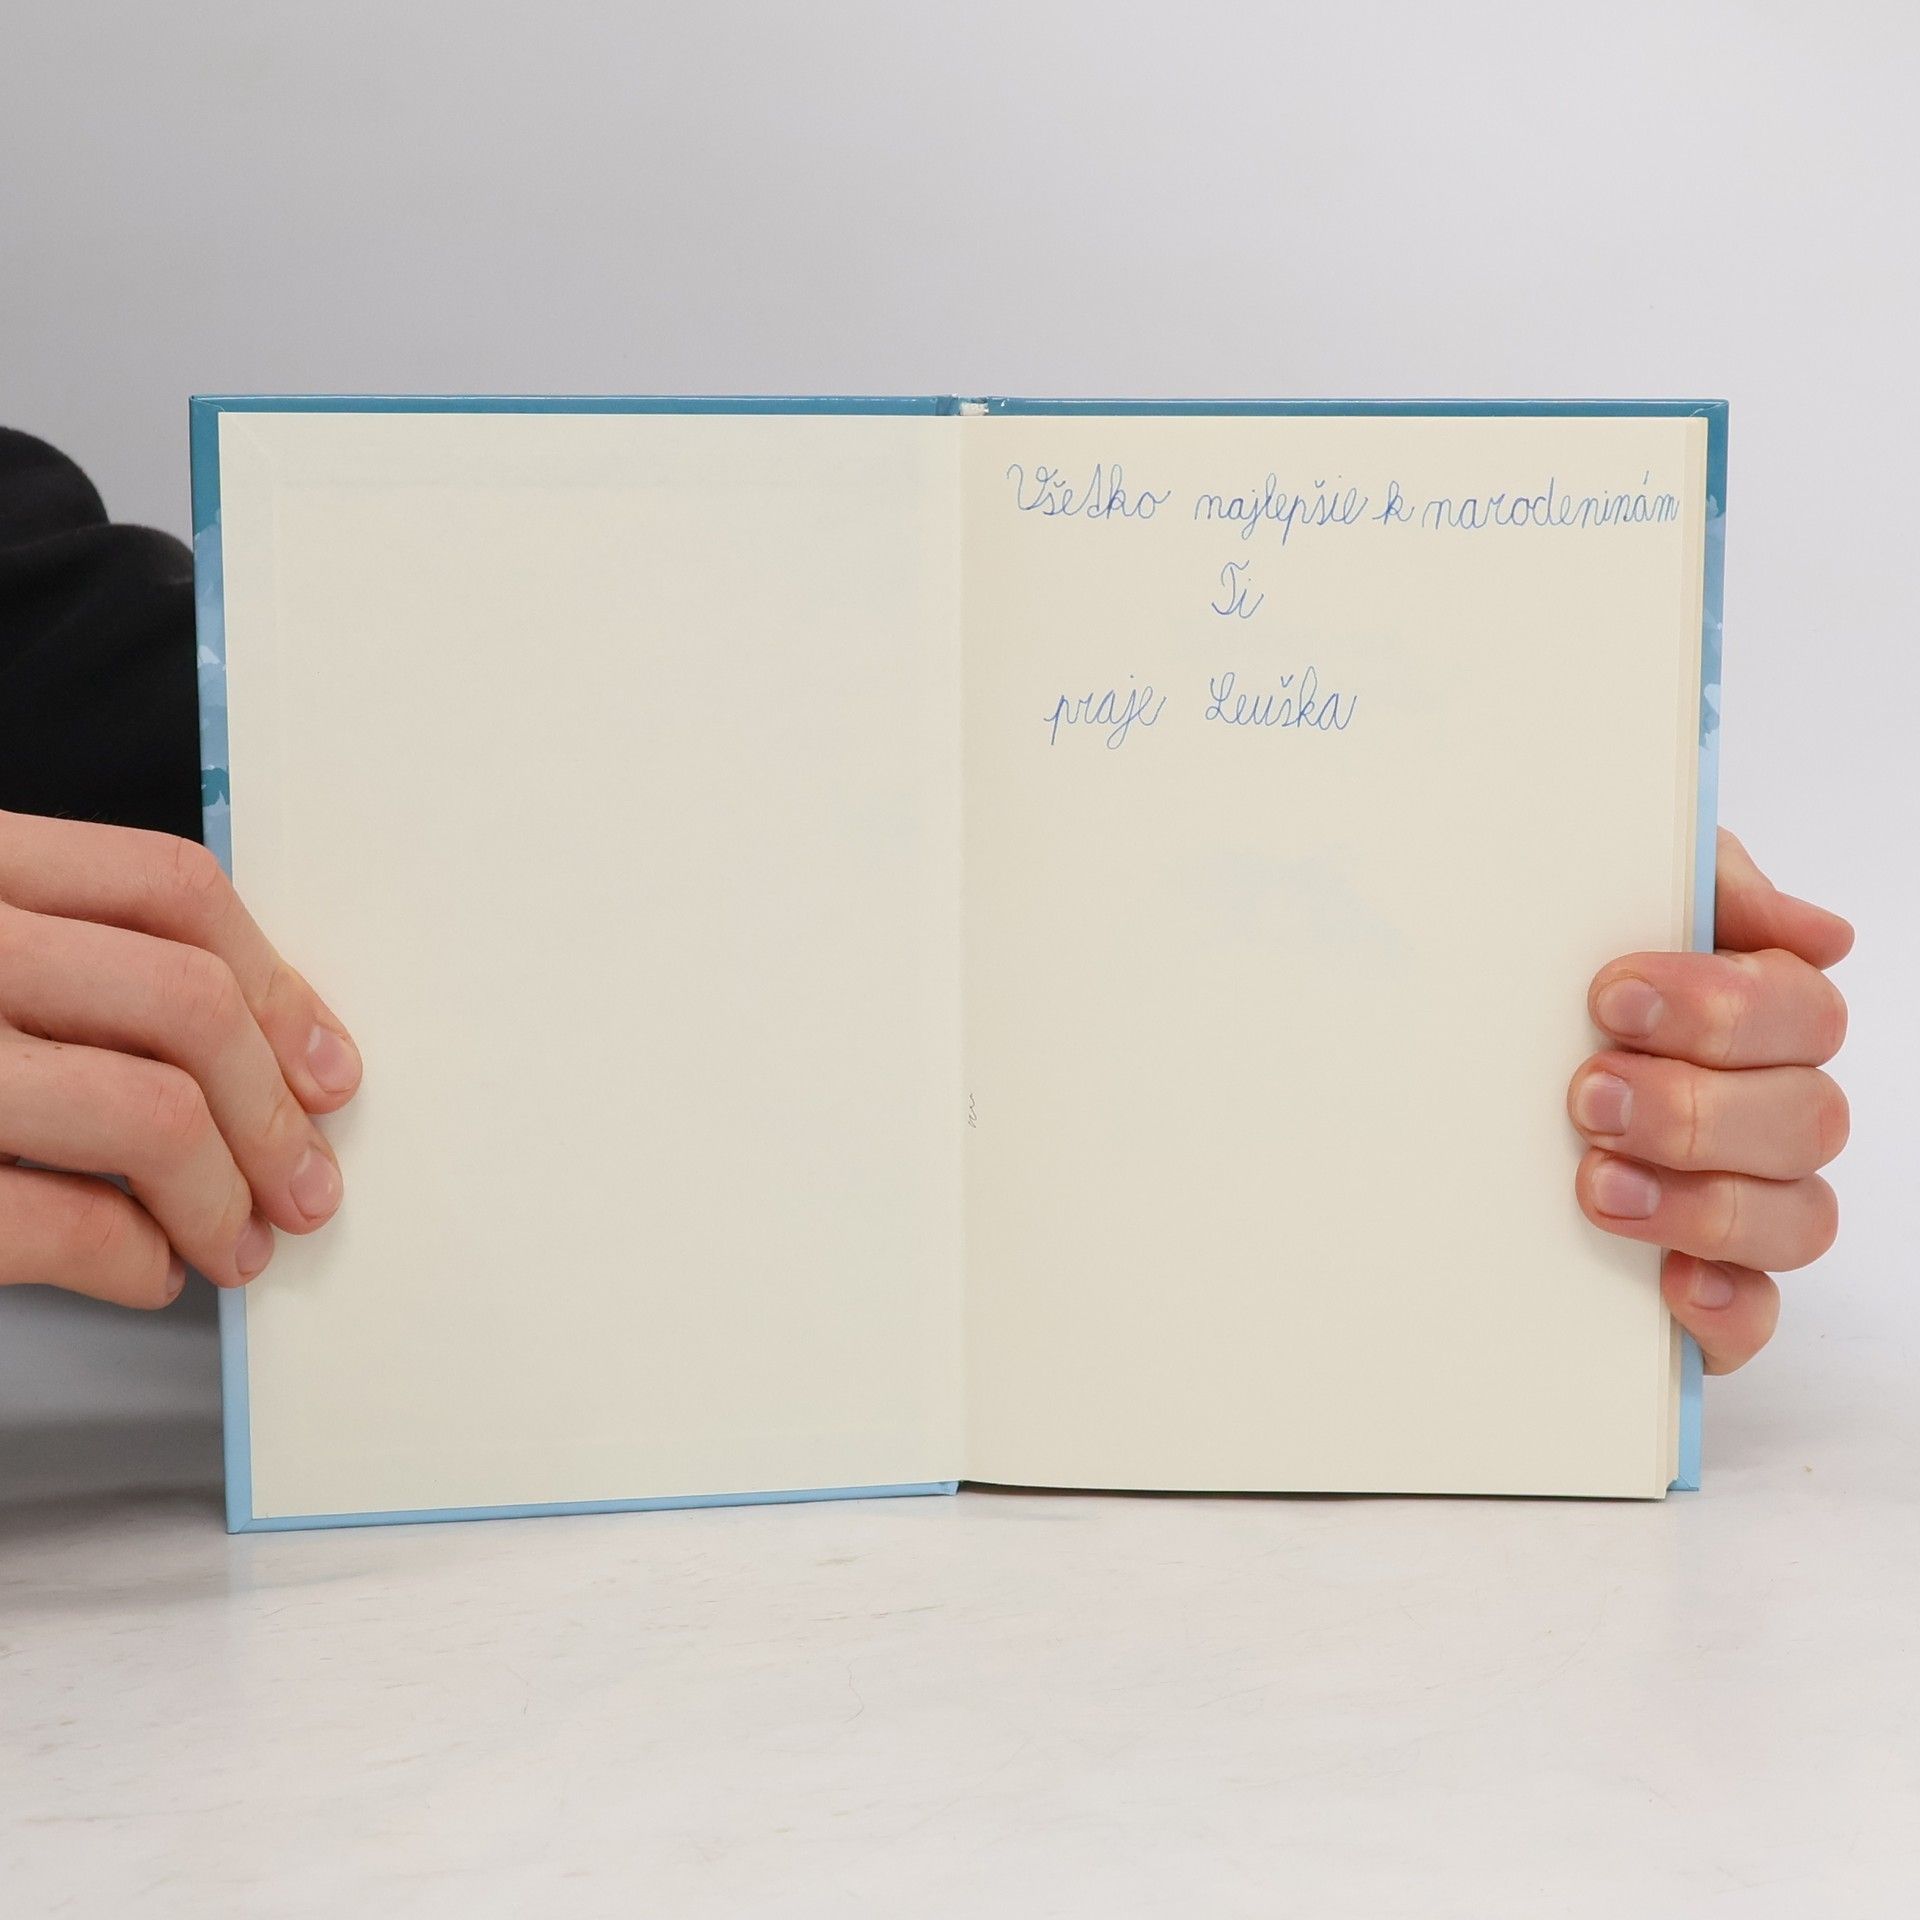 Všetko najlepšie k narodeninám
Ti
praje Leuška